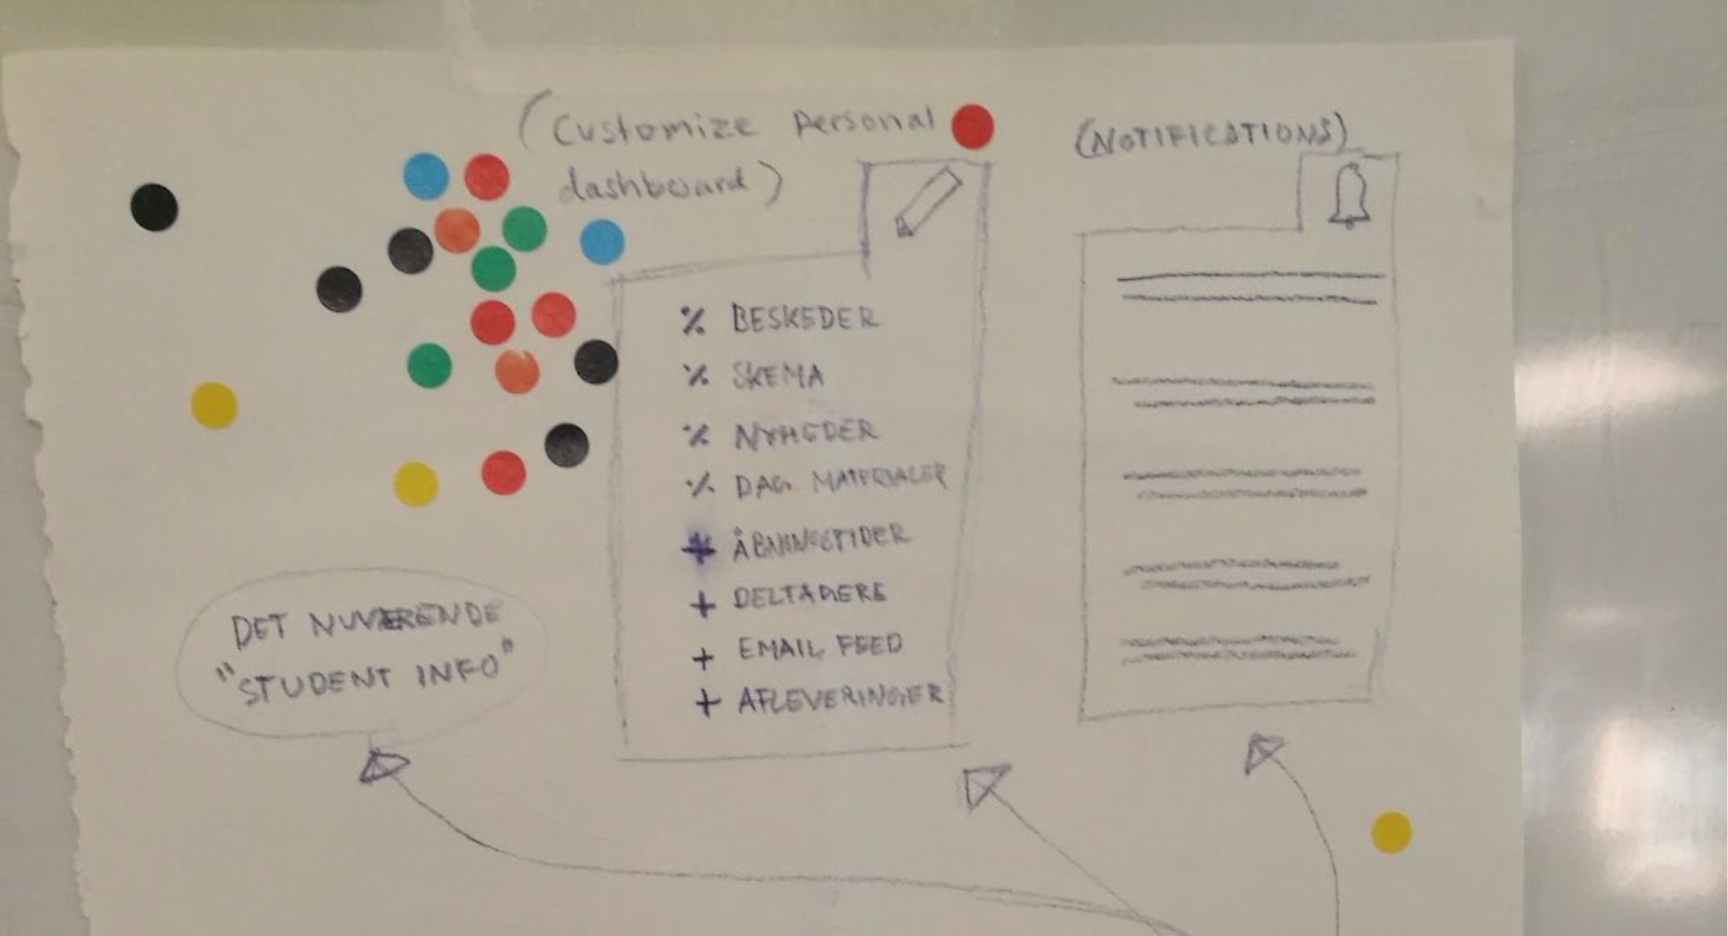 (Customize personal
dashboard)
(NOTIFICATIONS)
% BESKEDER
% SKEMA
% NYHEDER
% DAG. MATERIALER
+ ÅBNINGSTIDER
+ DELTAGERE
+ EMAIL FEED
+ AFLEVERINGER
DET NUVÆRENDE
"STUDENT INFO"